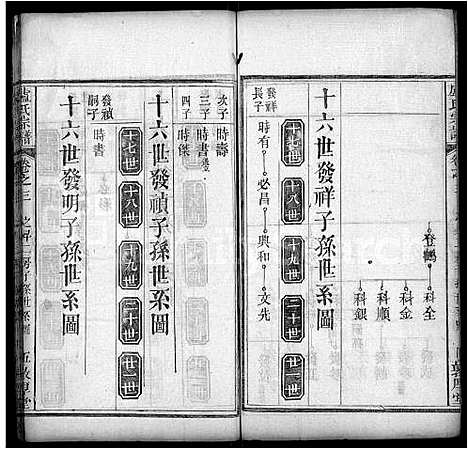 盧氏宗譜
登鶴
科全
科順
科銀
十六世發祥子孫世系圖
十七世
十八世
十九世
二十世
廿一世
發祥
長子
時有
必昌
興和
文先
次子
時壽
三子
時書
四子
時傑
十六世發禎子孫世系圖
十七世
十八世
十九世
二十世
廿一世
發禎
嗣子
時書
十六世發明子孫世系圖
盧氏宗譜
卷之三